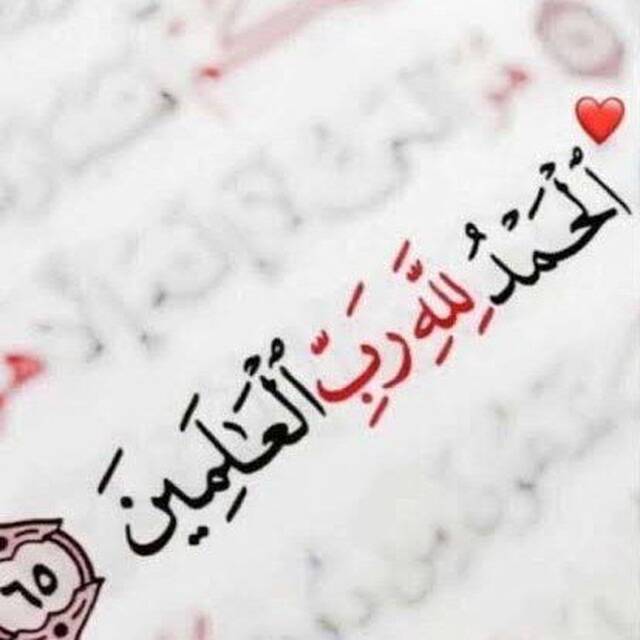 ٱلْحَمْدُ لِلَّهِ رَبِّ ٱلْعَٰلَمِينَ
٦٥